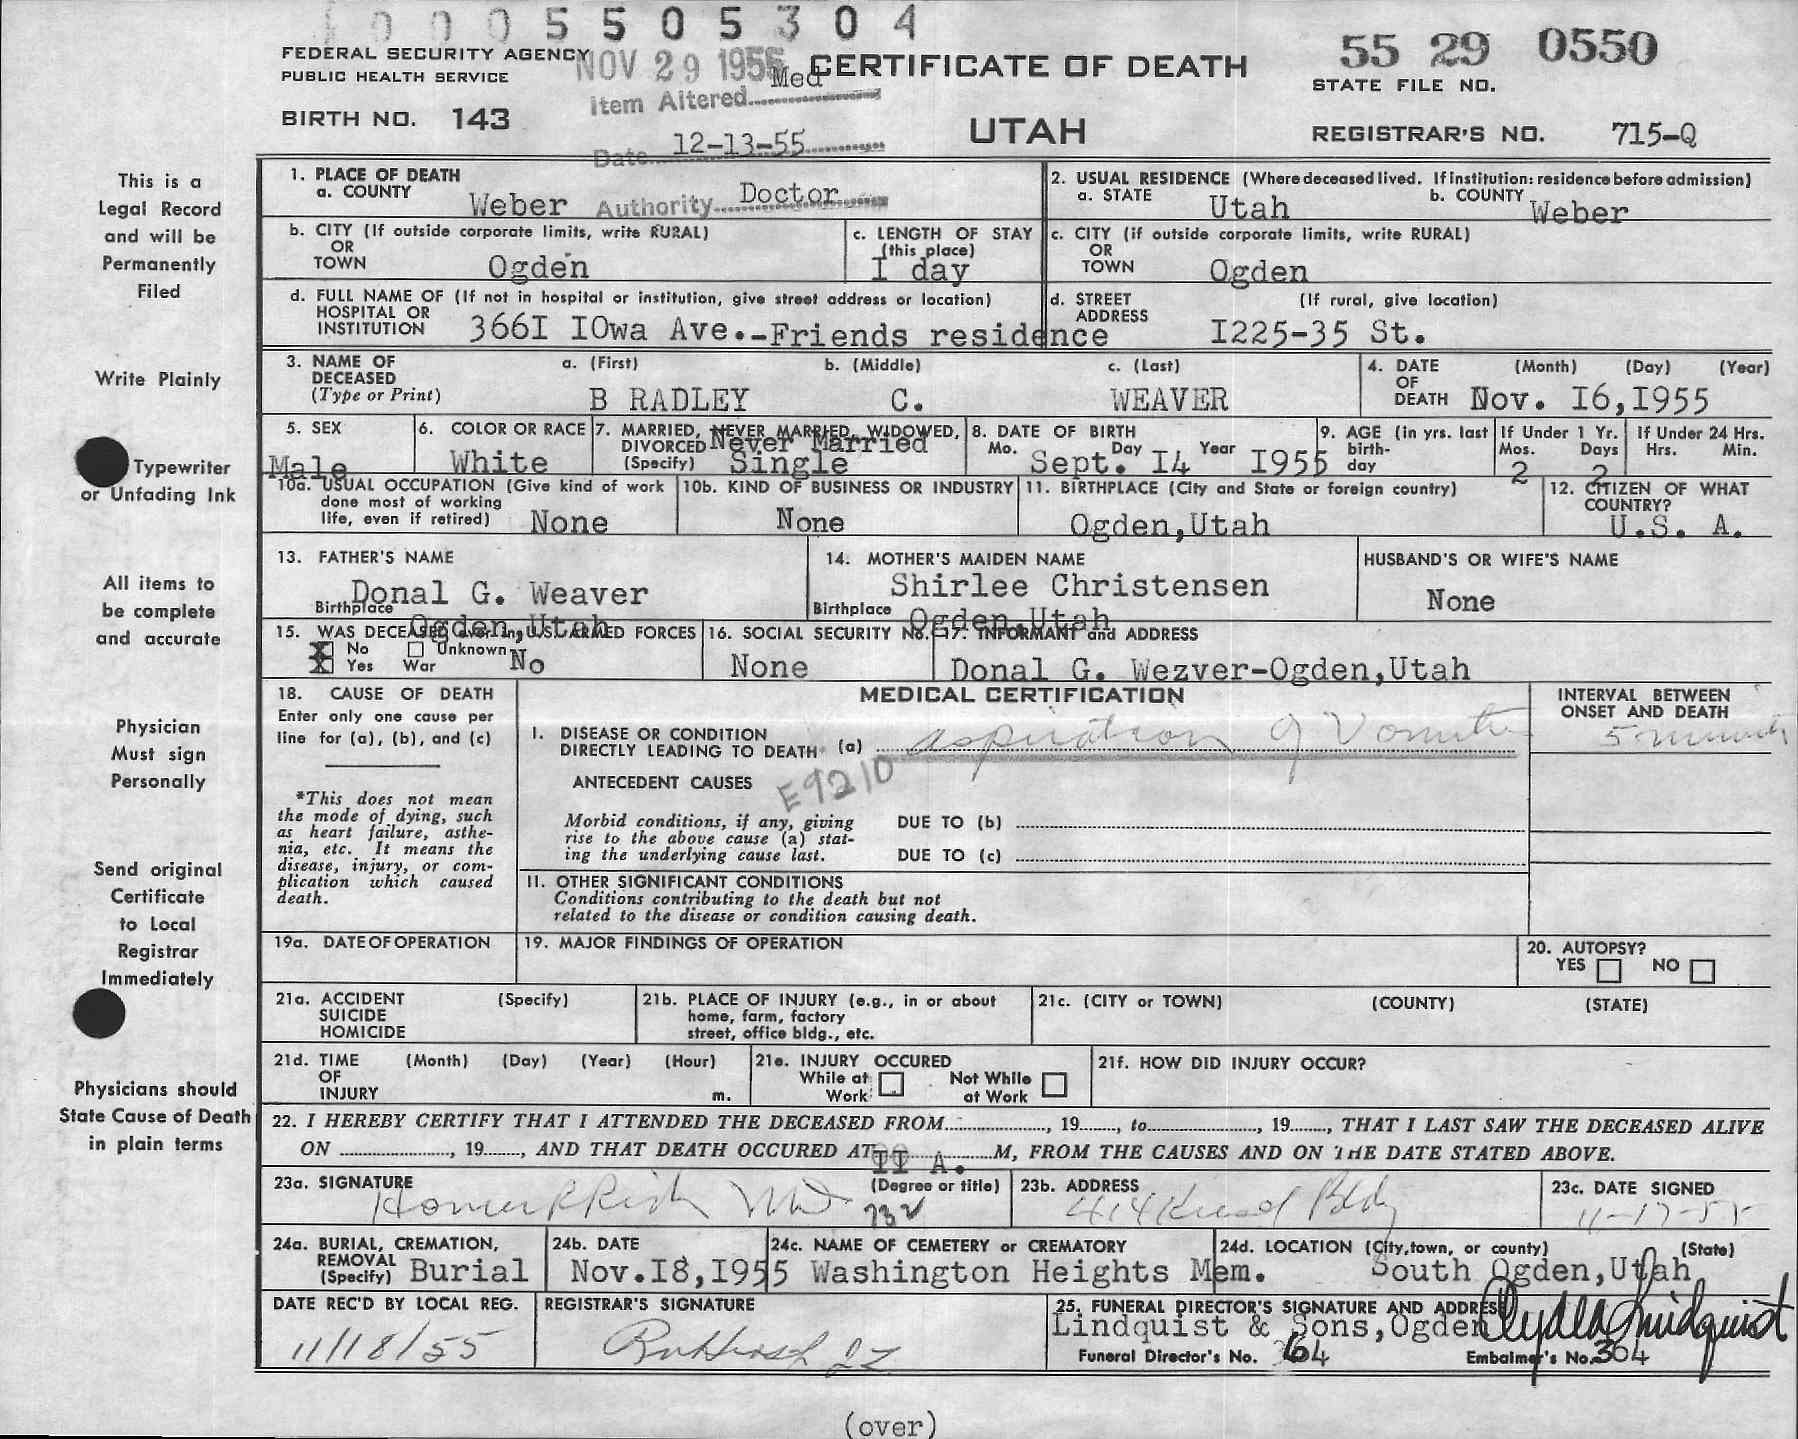 0005505304
FEDERAL SECURITY AGENCY
PUBLIC HEALTH SERVICE
NOV 29 1955
Med
CERTIFICATE OF DEATH
55 29 0550
STATE FILE NO.
Item Altered
BIRTH NO. 143
UTAH
REGISTRAR'S NO. 715-Q
Date 12-13-55
This is a
Legal Record
and will be
Permanently
Filed
1. PLACE OF DEATH
a. COUNTY Weber
Authority Doctor
2. USUAL RESIDENCE (Where deceased lived. If institution: residence before admission)
a. STATE Utah b. COUNTY Weber
b. CITY (If outside corporate limits, write RURAL)
OR
TOWN Ogden
c. LENGTH OF STAY
(this place)
I day
c. CITY (if outside corporate limits, write RURAL)
OR
TOWN Ogden
d. FULL NAME OF (If not in hospital or institution, give street address or location)
HOSPITAL OR
INSTITUTION 366I IOwa Ave.-Friends residence
d. STREET (If rural, give location)
ADDRESS I225-35 St.
Write Plainly
3. NAME OF DECEASED (Type or Print)
a. (First) b. (Middle) c. (Last)
B RADLEY C. WEAVER
4. DATE OF DEATH (Month) (Day) (Year)
Nov. I6,I955
Typewriter
or Unfading Ink
5. SEX
Male
6. COLOR OR RACE
White
7. MARRIED, NEVER MARRIED, WIDOWED,
DIVORCED Never Married
(Specify) Single
8. DATE OF BIRTH
Mo. Day Year
Sept. I4 I955
9. AGE (in yrs. last birth-day
If Under 1 Yr.
Mos. Days
2 2
If Under 24 Hrs.
Hrs. Min.
10a. USUAL OCCUPATION (Give kind of work
done most of working
life, even if retired) None
10b. KIND OF BUSINESS OR INDUSTRY
None
11. BIRTHPLACE (City and State or foreign country)
Ogden,Utah
12. CITIZEN OF WHAT
COUNTRY?
U.S. A.
All items to
be complete
and accurate
13. FATHER'S NAME
Donal G. Weaver
Birthplace Ogden,Utah
14. MOTHER'S MAIDEN NAME
Shirlee Christensen
Birthplace Ogden,Utah
HUSBAND'S OR WIFE'S NAME
None
15. WAS DECEASED ever in U.S. ARMED FORCES
No Unknown
Yes War No
16. SOCIAL SECURITY No.
None
17. INFORMANT and ADDRESS
Donal G. Wezver-Ogden,Utah
Physician
Must sign
Personally
18. CAUSE OF DEATH
Enter only one cause per
line for (a), (b), and (c)
*This does not mean
the mode of dying, such
as heart failure, asthe-
nia, etc. It means the
disease, injury, or com-
plication which caused
death.
MEDICAL CERTIFICATION
INTERVAL BETWEEN
ONSET AND DEATH
I. DISEASE OR CONDITION
DIRECTLY LEADING TO DEATH* (a) aspiration of
5 minutes
ANTECEDENT CAUSES
E9210
Morbid conditions, if any, giving
rise to the above cause (a) stat-
ing the underlying cause last.
DUE TO (b)
DUE TO (c)
II. OTHER SIGNIFICANT CONDITIONS
Conditions contributing to the death but not
related to the disease or condition causing death.
Send original
Certificate
to Local
Registrar
Immediately
19a. DATE OF OPERATION
19. MAJOR FINDINGS OF OPERATION
20. AUTOPSY?
YES NO
21a. ACCIDENT (Specify)
SUICIDE
HOMICIDE
21b. PLACE OF INJURY (e.g., in or about
home, farm, factory
street, office bldg., etc.
21c. (CITY or TOWN) (COUNTY) (STATE)
21d. TIME (Month) (Day) (Year) (Hour)
OF
INJURY m.
21e. INJURY OCCURED
While at Work Not While at Work
21f. HOW DID INJURY OCCUR?
Physicians should
State Cause of Death
in plain terms
22. I HEREBY CERTIFY THAT I ATTENDED THE DECEASED FROM , 19 , to , 19 , THAT I LAST SAW THE DECEASED ALIVE
ON , 19 , AND THAT DEATH OCCURED AT II A. M, FROM THE CAUSES AND ON THE DATE STATED ABOVE.
23a. SIGNATURE (Degree or title)
Homer R Rich MD
732
23b. ADDRESS
414 Kiesel Bldg
23c. DATE SIGNED
11-17-55
24a. BURIAL, CREMATION,
REMOVAL
(Specify) Burial
24b. DATE
Nov.I8,I955
24c. NAME OF CEMETERY or CREMATORY
Washington Heights Mem.
24d. LOCATION (City,town, or county) (State)
South Ogden,Utah
DATE REC'D BY LOCAL REG.
11/18/55
REGISTRAR'S SIGNATURE
25. FUNERAL DIRECTOR'S SIGNATURE AND ADDRESS
Lindquist & Sons,Ogden Clyde Lindquist
Funeral Director's No. 64
Embalmer's No. 304
(over)